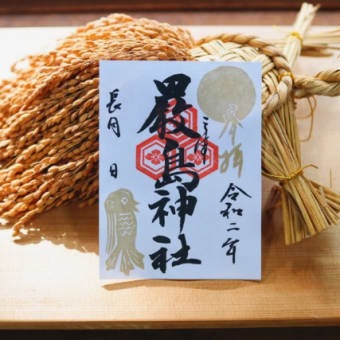 奉拝
令和二年
嚴島神社
長月 日